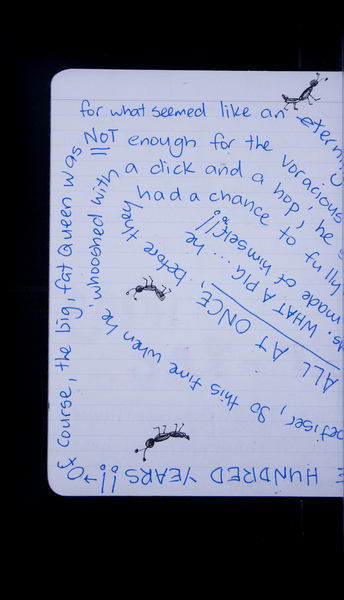 for what seemed like an
HUNDRED YEARS!! →
Of course, the big, fat Queen was
NOT enough for the voracious
so this time when he
whooshed with
a click and a hop, he
ALL AT ONCE, before they
had a chance to fully
he ...
WHAT A PIG
made of himself!!